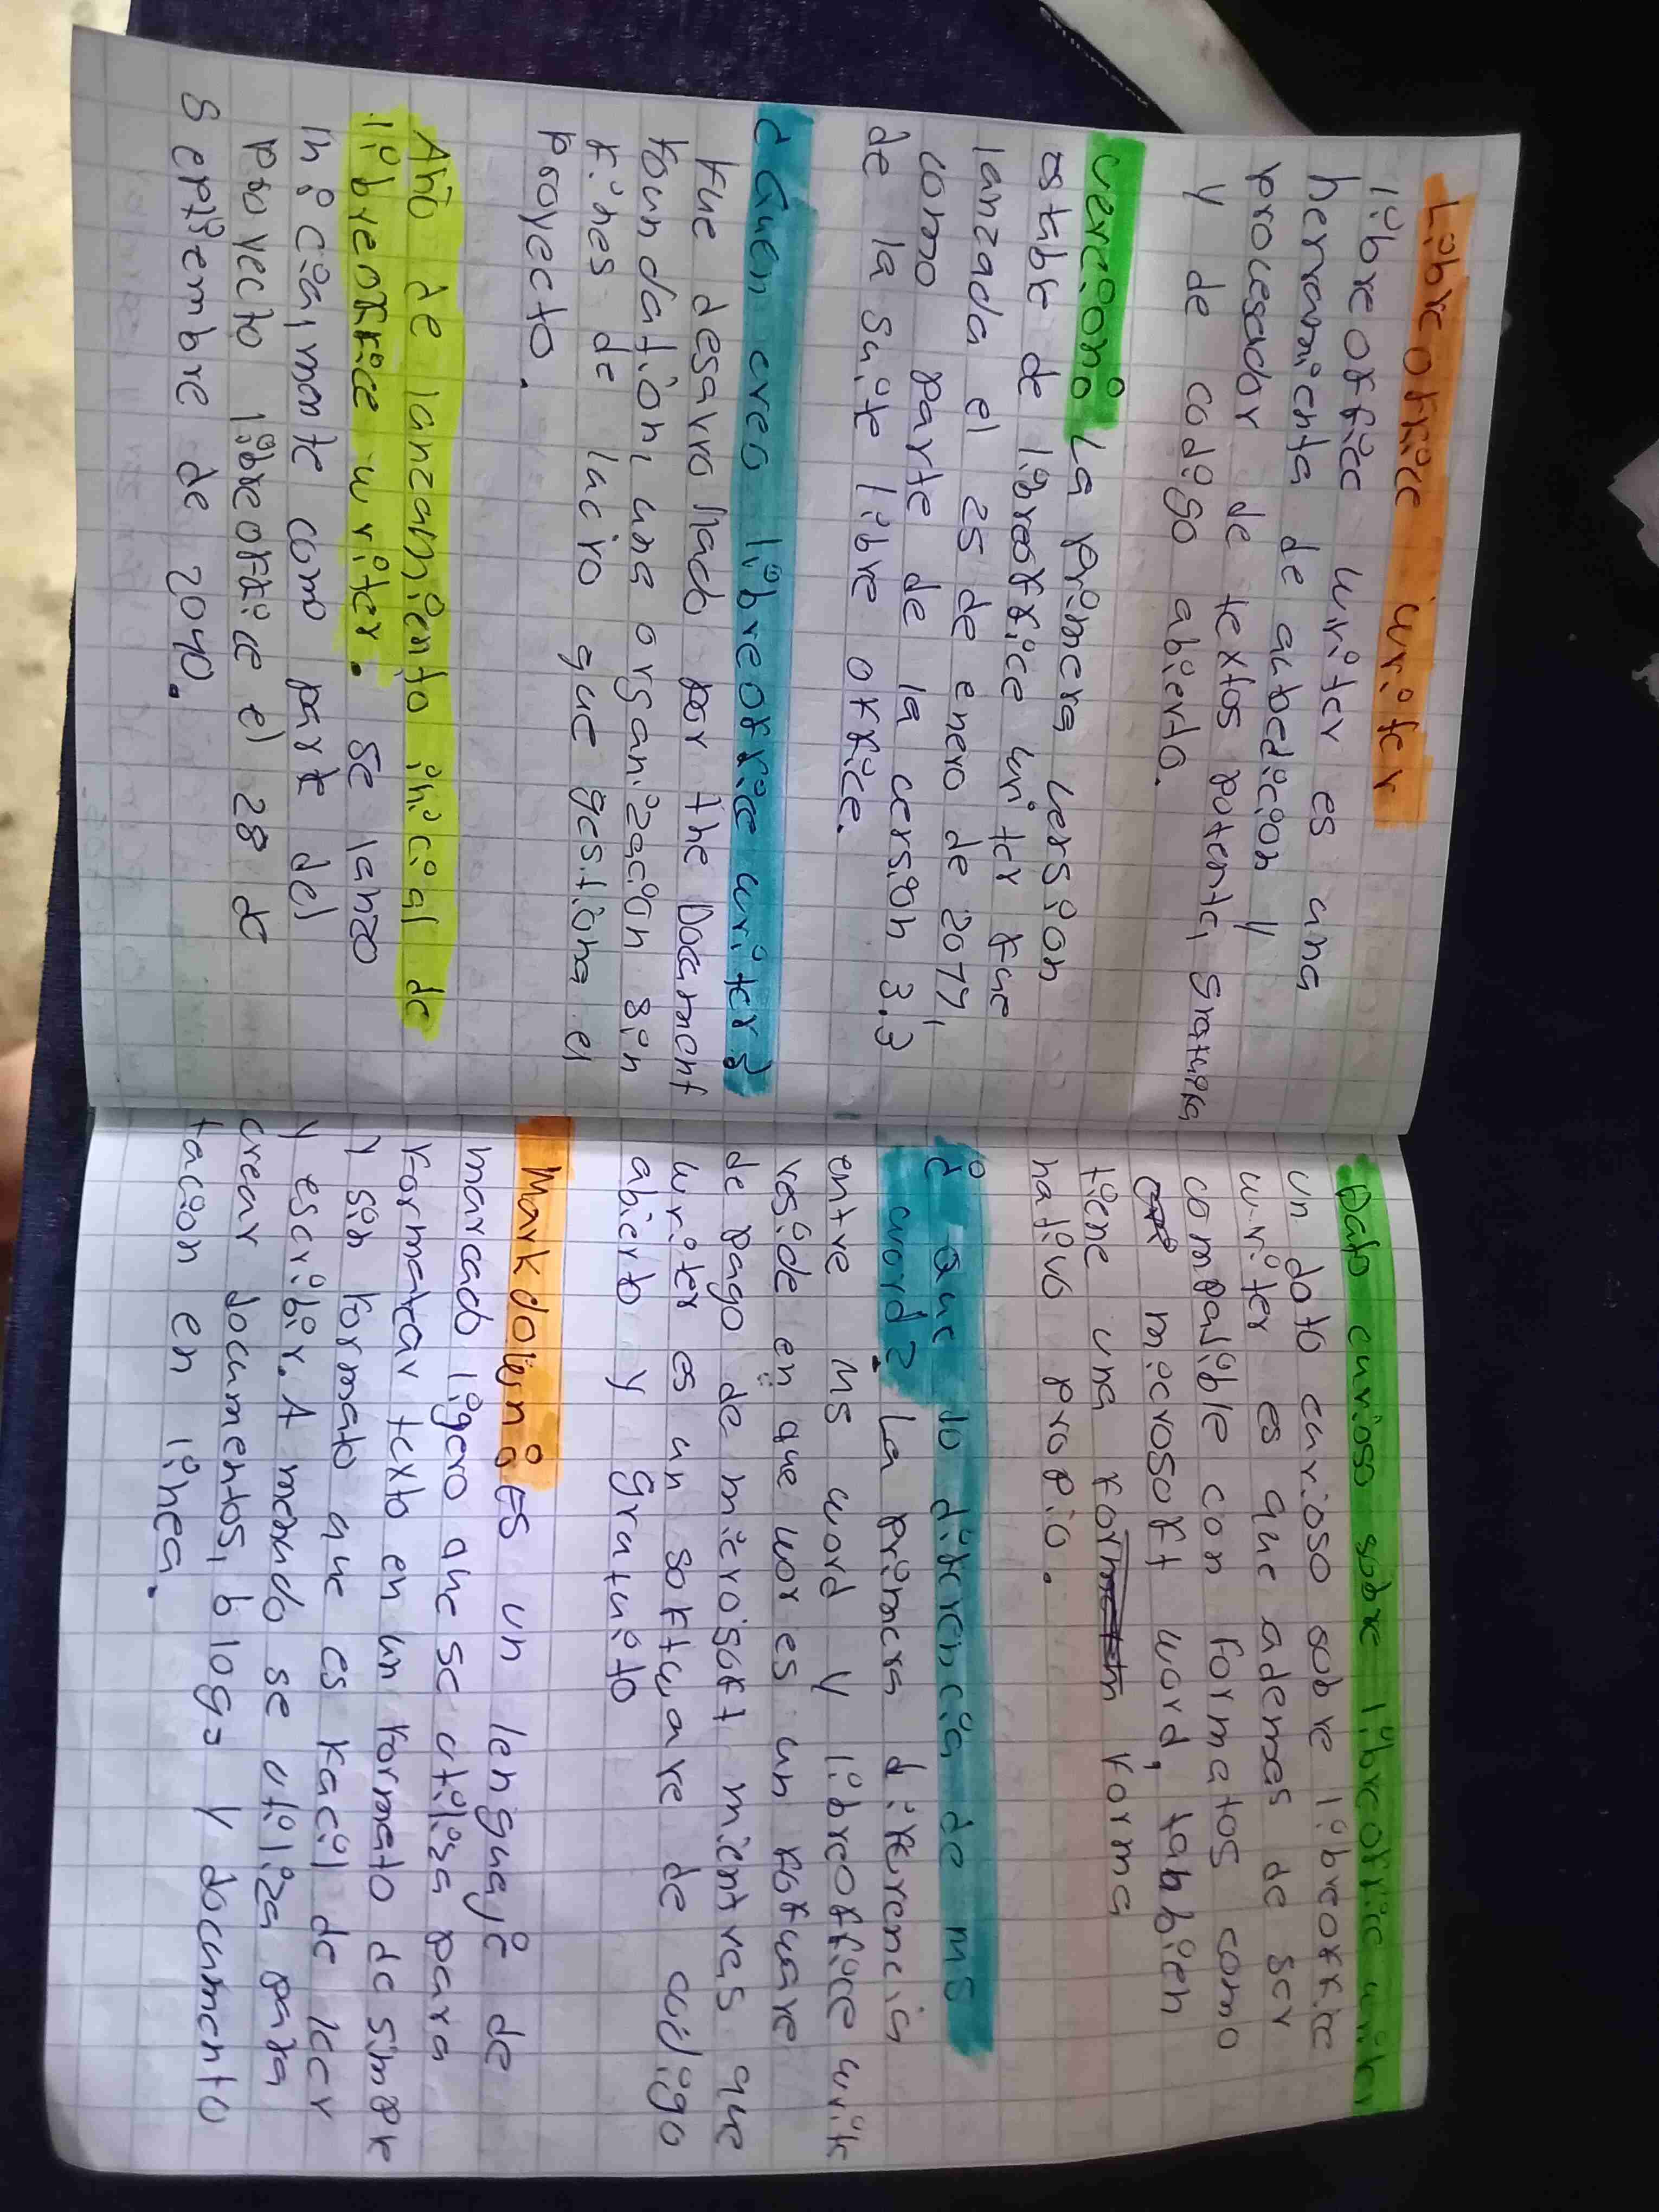 Libreoffice writer
libreoffice writer es una
herramienta de autoedicion y
procesador de textos potente, gratuita
y de codigo abierto.
Vercion: La primera version
estable de libreoffice writer fue
lanzada el 25 de enero de 2011,
como parte de la cersion 3.3
de la suite libre office.
¿Quien creo libreoffice writer?
Fue desarrollado por the Document
Foundation, una organización sin
fines de lucro que gestiona el
proyecto.
Año de lanzamiento inicial de
libreoffice writer. Se lanzo
inicialmente como parte del
proyecto libreoffice el 28 de
Septiembre de 2010.
Dato curioso sobre libreoffice writer
un dato curioso sobre libreoffice
writer es que ademas de ser
compatible con formatos como
microsoft word, tanbien
tiene una forma
nativo propio.
¿Que lo diferencia de ms
word? La primera diferencia
entre ms word y libreoffice write
reside en que wor es un fotware
de pago de microisoft mientras que
writer es un software de codigo
abierto y gratuito
Markdown: Es un lenguaje de
marcado ligero que se utiliza para
formatear texto en un formato de simple
y sin formato que es facil de leer
y escribir. A menudo se utiliza para
crear documentos, blogs y documento
tacion en linea.